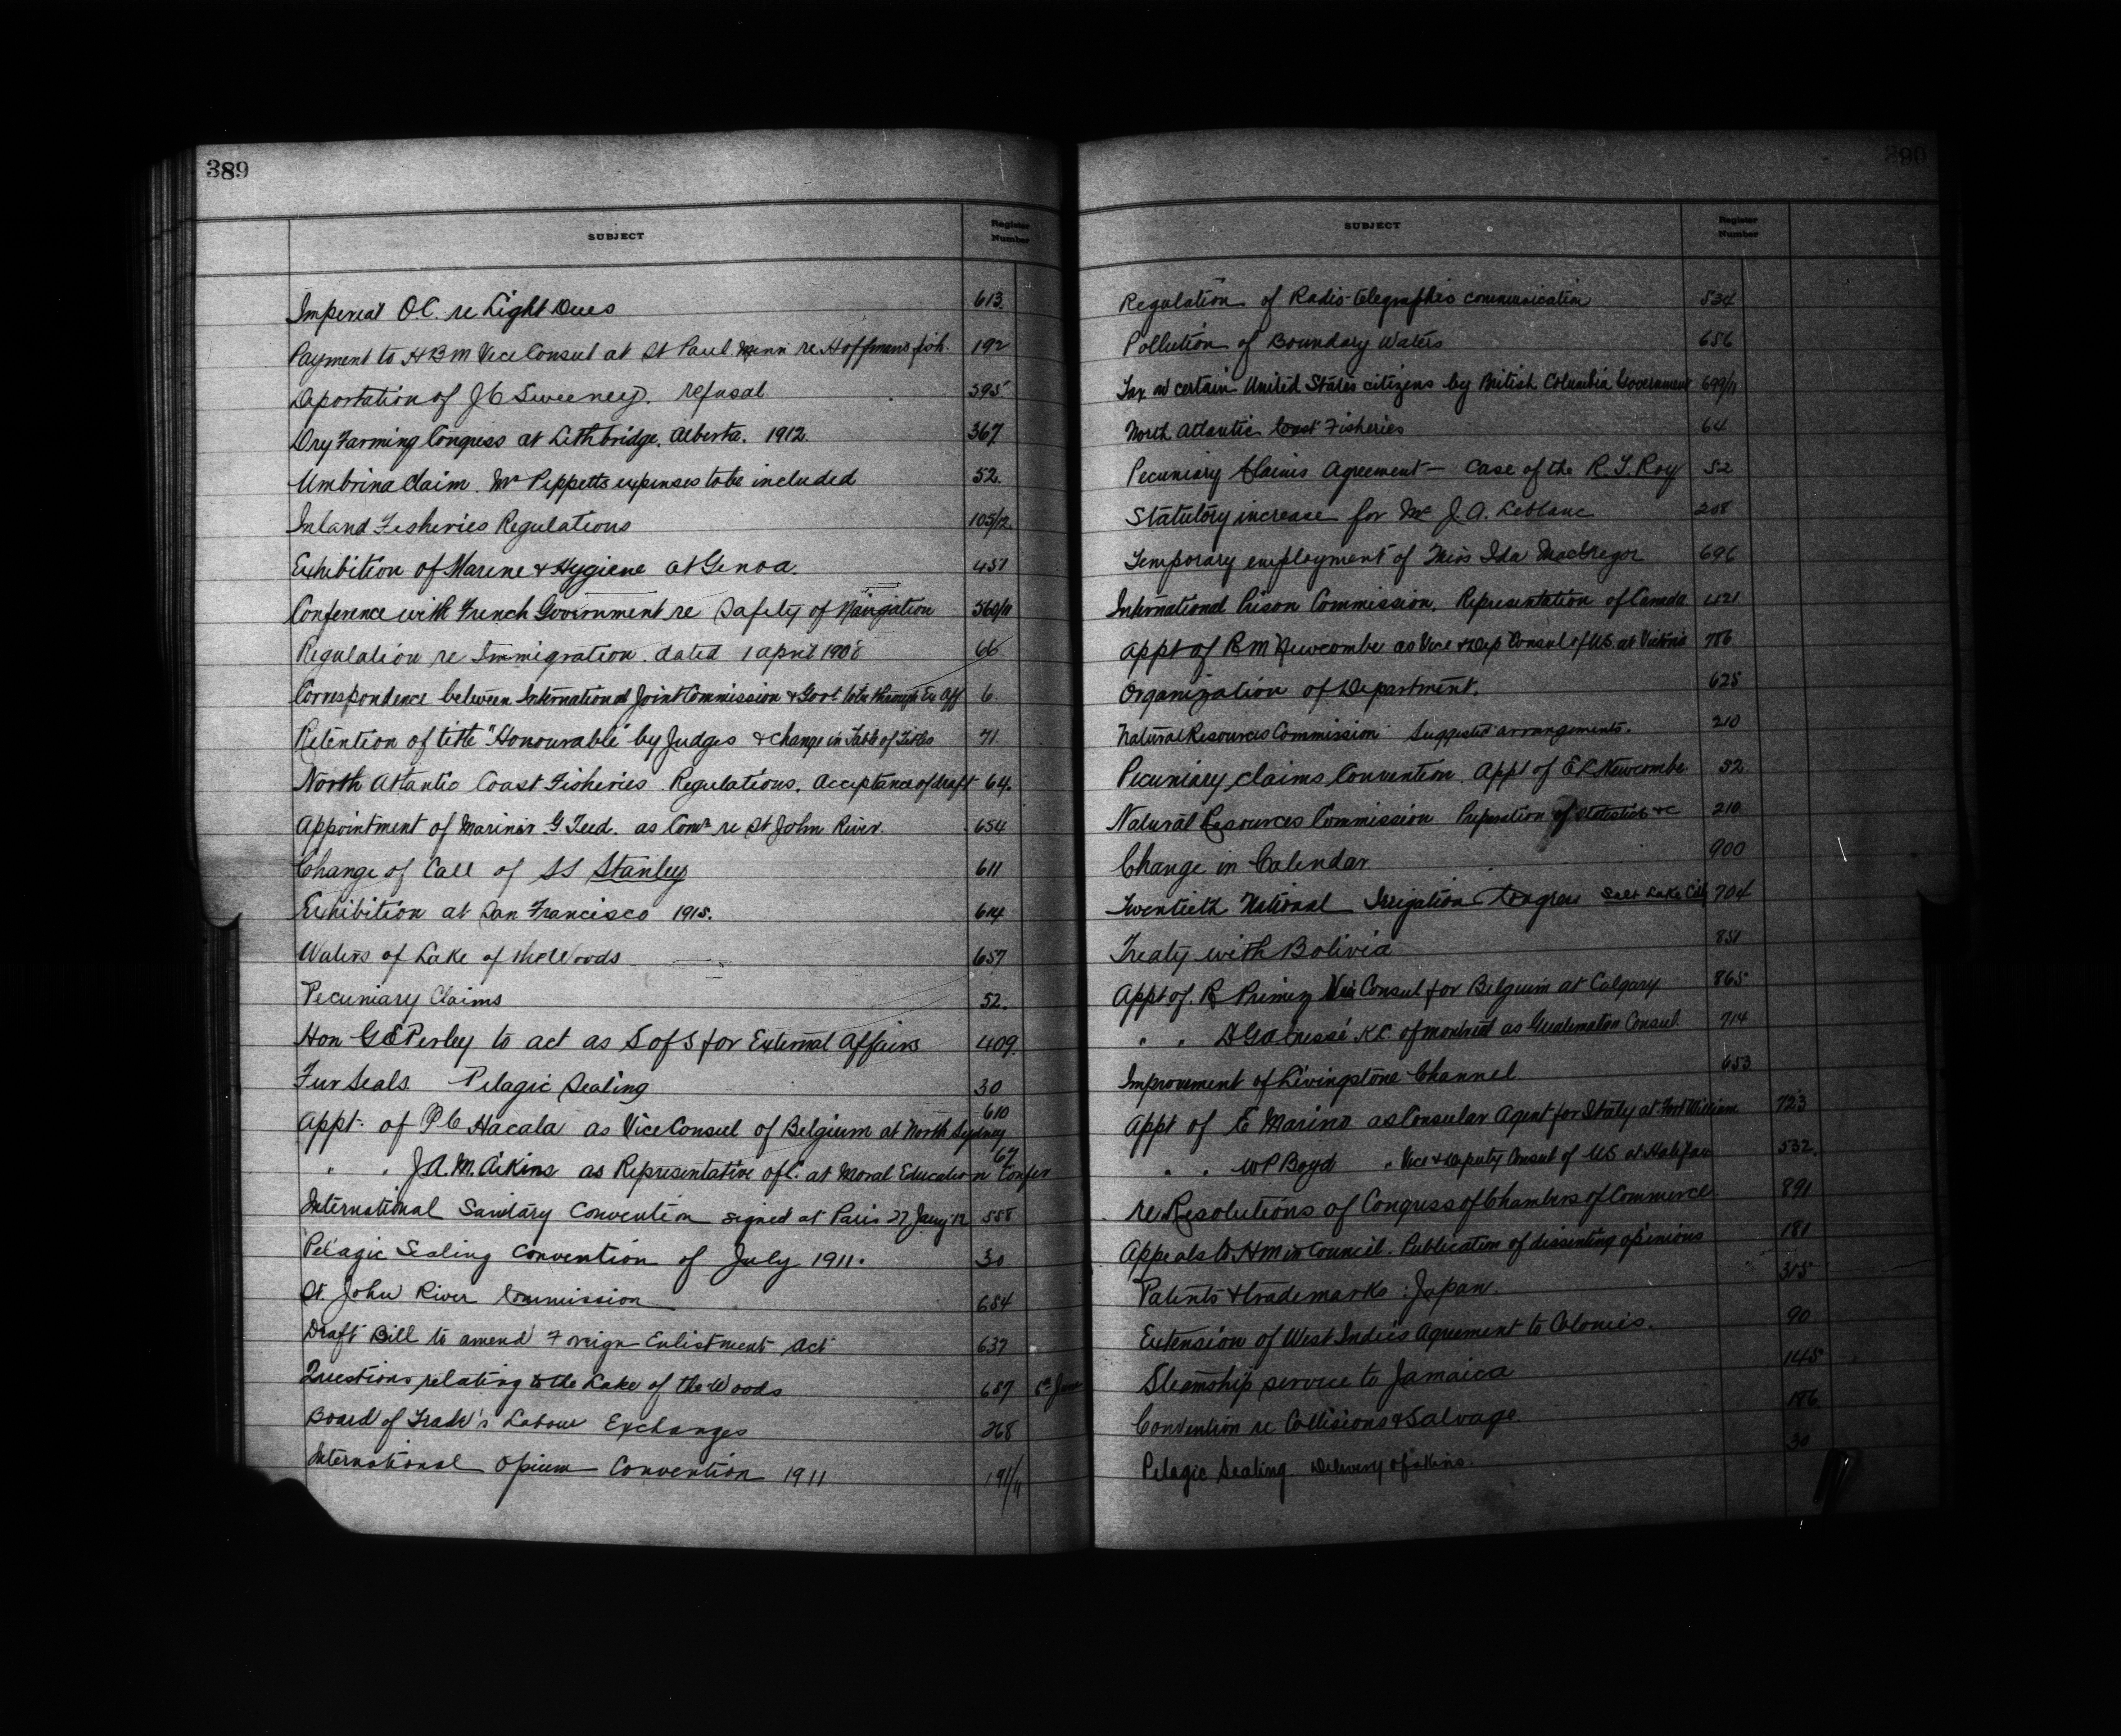 389
SUBJECT Register Number
Imperial O.C. re Light Dues 613.
Payment to HBM Vice Consul at St Paul Minn re Hoffmans fish. 192
Deportation of J C Sweeney. refusal 395
Dry Farming Congress at Lethbridge, Alberta. 1912. 367
Umbrina Claim. Mr Peppetts expenses to be included 52.
Inland Fisheries Regulations 105/12.
Exhibition of Marine & Hygiene at Genoa. 451
Conference with French Government re Safety of Navigation 560/11
Regulation re Immigration. dated 1 april 1908 66
Correspondence between International Joint Commission & Govt to be through Ex Aff 6.
Retention of title "Honourable" by Judges & change in Table of Titles 71.
North Atlantic Coast Fisheries Regulations. Acceptance of draft 64.
Appointment of Mariner G. Teed. as Comr re St John River. 654
Change of Call of SS Stanley 611
Exhibition at San Francisco 1915. 614
Waters of Lake of the Woods 657
Pecuniary Claims 52.
Hon G E Perley to act as S of S for External Affairs 409.
Fur Seals. Pelagic Sealing 30
Appt. of P C Hacala as Vice Consul of Belgium at North Sydney 610
" " J.A.M. Aikins as Representative of C. at Moral Education Confer 67
International Sanitary Convention signed at Paris 27 Jany '12 558
Pelagic Sealing Convention of July 1911. 30.
St. John River Commission 654
Draft Bill to amend Foreign Enlistment Act 637
Questions relating to the Lake of the Woods 657 6th June
Board of Trade's Labour Exchanges 268
International Opium Convention 1911 191/11
390
SUBJECT Register Number
Regulation of Radio-telegraphic communication 534
Pollution of Boundary Waters 656
Tax on certain United States citizens by British Columbia Government 699/11
North Atlantic Coast Fisheries 64
Pecuniary Claims Agreement — Case of the R.T. Roy 52
Statutory increase for Mr J. A. Leblanc 208
Temporary employment of Miss Ida MacGregor 696
International Prison Commission. Representation of Canada 421
Appt of R M Newcombe as Vice & Dep Consul of US. at Victoria 786
Organization of Department. 625
Natural Resources Commission Suggested arrangements. 210
Pecuniary claims Convention. Appt of E L Newcombe 52
Natural Resources Commission Preparation of statistics &c 210
Change in Calendar. 900
Twentieth National Irrigation Congress Salt Lake City 704
Treaty with Bolivia 851
Appt of. R Primey Vice Consul for Belgium at Calgary 865
" " K.C. of Montreal as Guatemalan Consul 714
Improvement of Livingstone Channel 653
Appt of E Marino as Consular Agent for Italy at Fort William 723
" " W P Boyd " Vice & Deputy Consul of US at Halifax 532.
re Resolutions of Congress of Chambers of Commerce 891
Appeals to H M in Council. Publication of dissenting opinions 181
Patents & trademarks : Japan. 315
Extension of West Indies Agreement to Colonies. 90
Steamship service to Jamaica 145
Convention re Collisions & Salvage. 186
Pelagic Sealing. Delivery of skins. 30